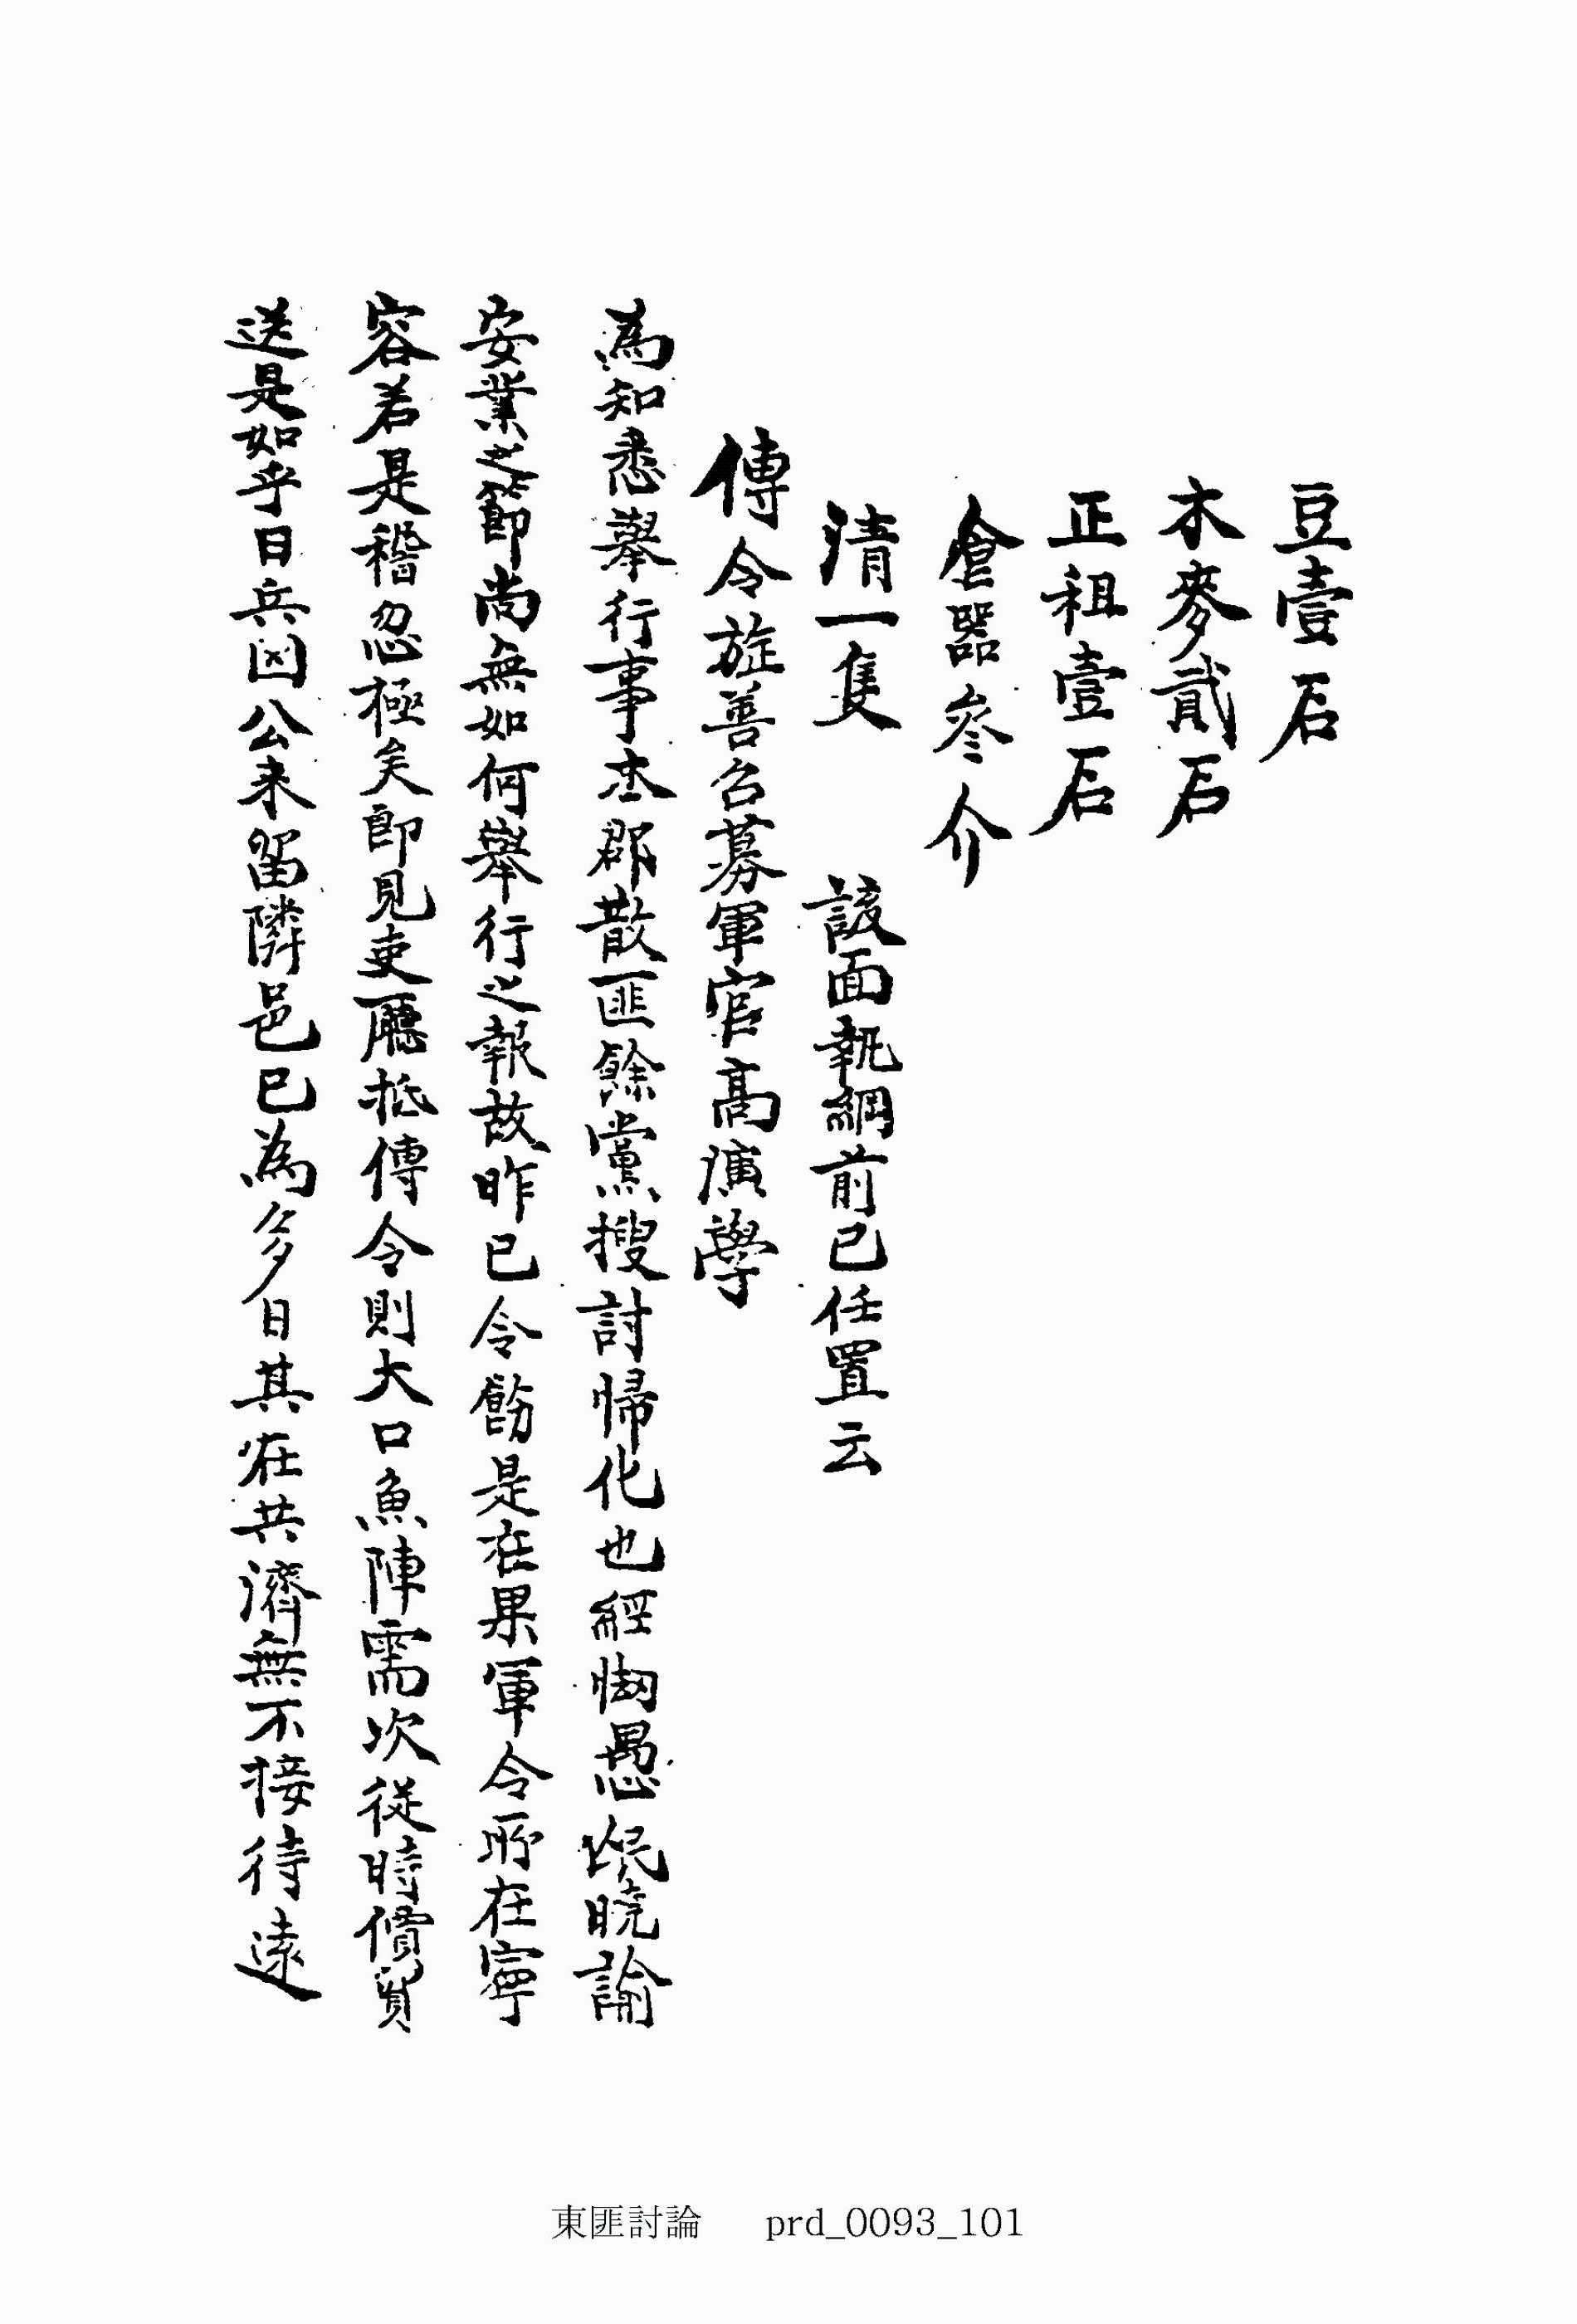 豆壹石
木麥貳石
正租壹石
倉器參介
淸一隻 該面執綱前已任置云
傳令旋善召募軍官高演學
為知悉擧行事本郡散匪餘黨搜討歸化也經悔愚氓曉諭
安業之節尙無如何擧行之報故昨已令飭是在果軍令所在寧
容若是稽忽極矣卽見吏廳抵傳令則大口魚陣需次從時價貿
送是如乎日兵因公来留隣邑已為多日其在共濟無不接待遠
東匪討論 prd_0093_101